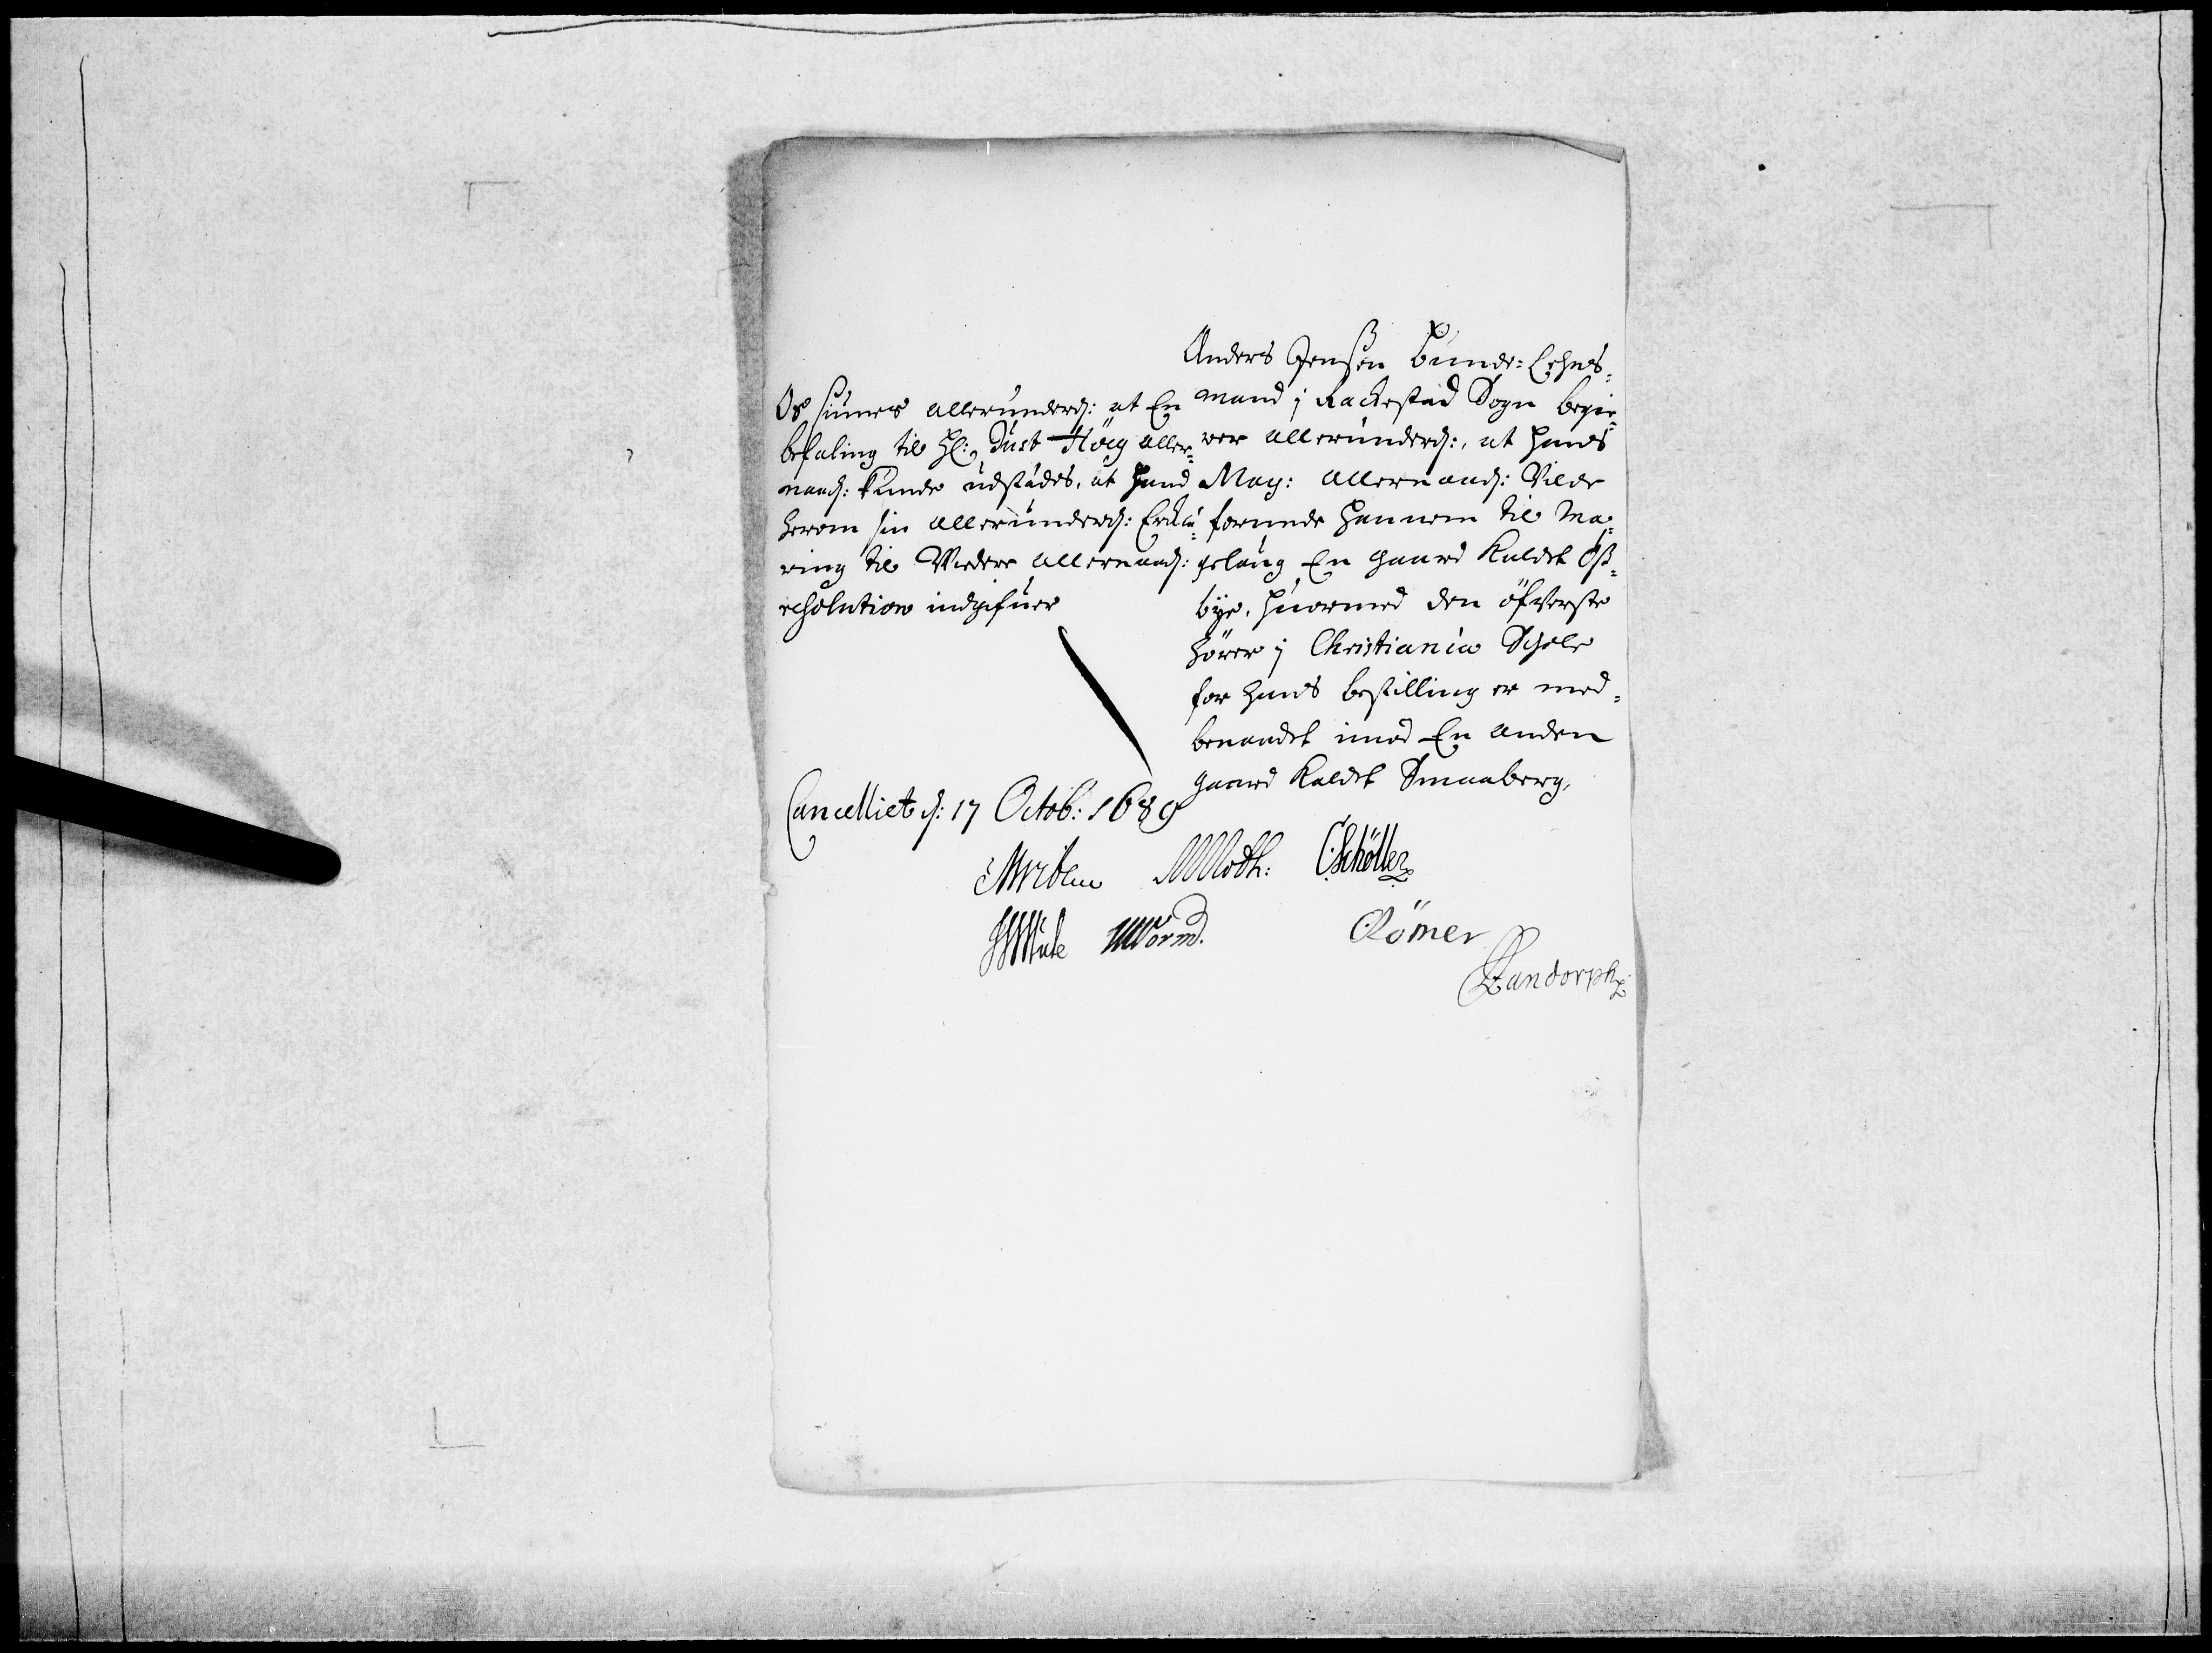 Anders Jensen Bunde-Lehns-
mand i Rackestad Sogn begie-
rer allerunderd:, at hands
May: allernaad: Vilde
forunde hannem til Ma-
gelaug En gaard Kaldet Øß-
bye, huormed den öfverste
hörer i Christiania Schole
for hans bestilling er med-
benaadet imod En anden
gaard Kaldet Smaaberg,
Os siunes allerunderd: at En
befaling til Hl: Just Höeg aller-
naad: kunde udstædes, at hand
herom sin allerunderd: Erklæ-
ring til Videre allernaad:
resolution indgifuer
Cancelliet d: 17 Octob: 1689
MVibeu MMoth: CSchöller
WWorm. ORömer
Landorph